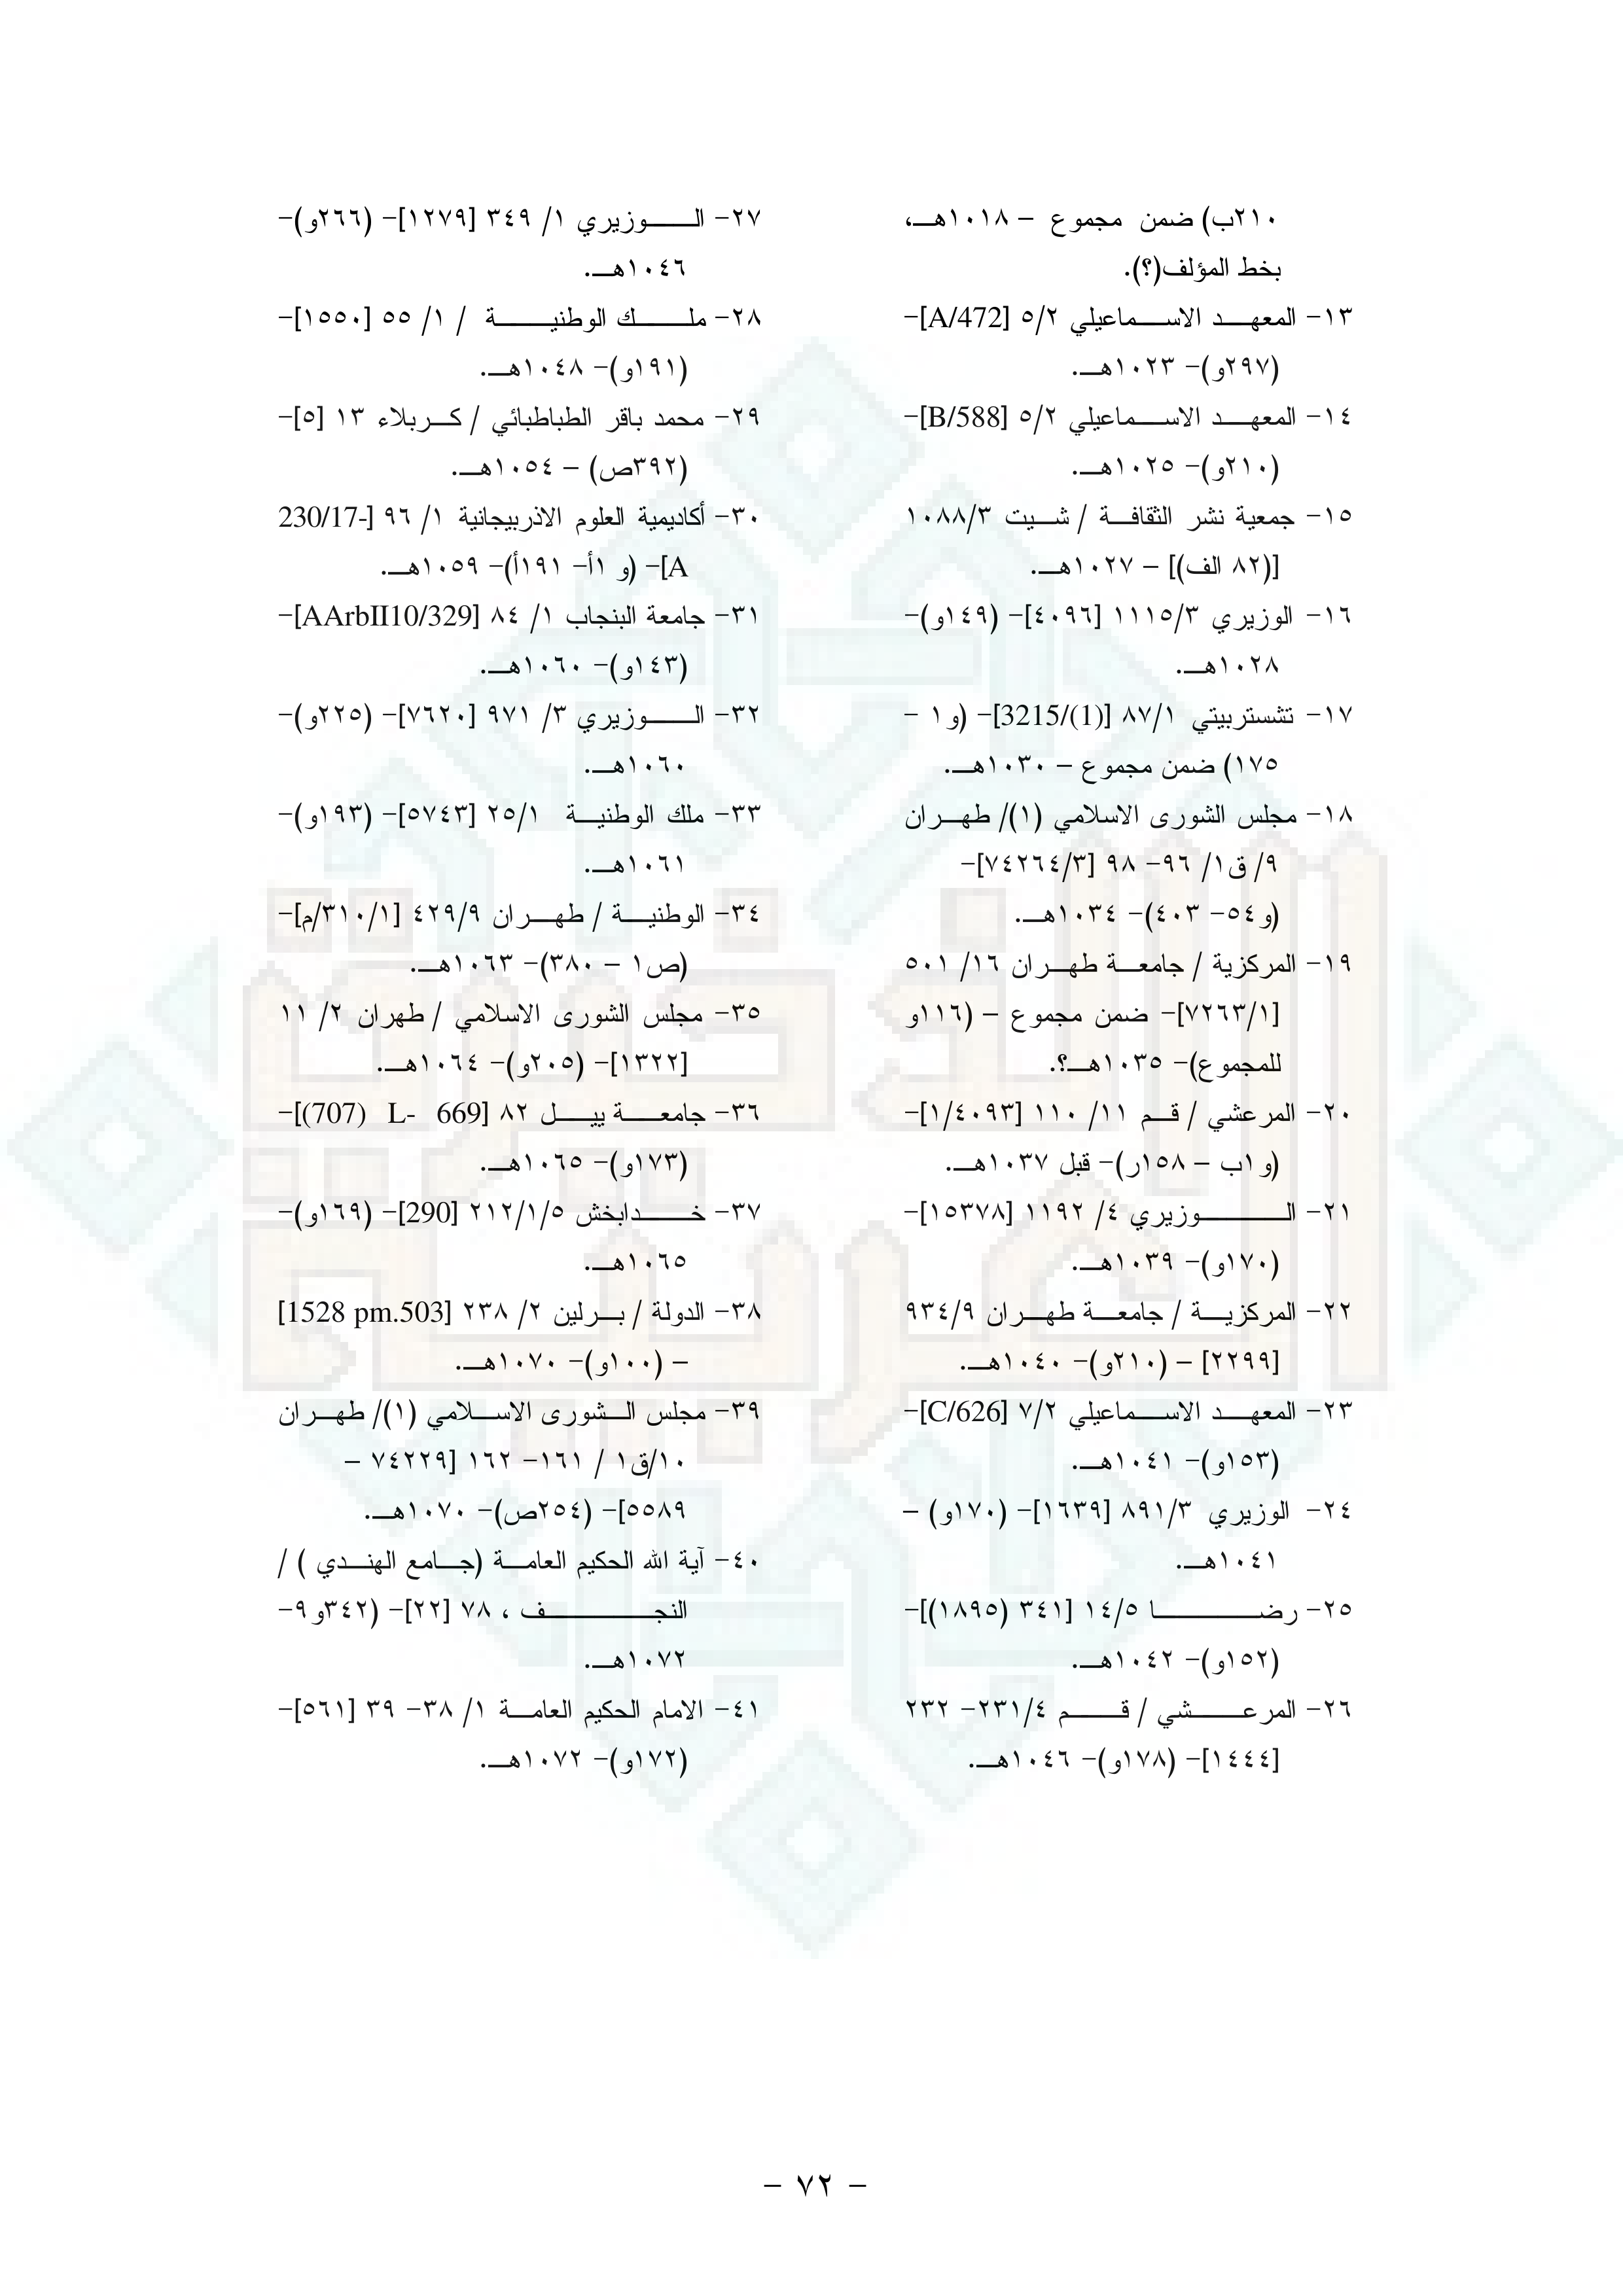 ٢١٠ب) ضمن مجموع – ١٠١٨هـ،
بخط المؤلف(؟).
١٣- المعهد الاسماعيلي ٥/٢ [A/472]-
(٢٩٧و)- ١٠٢٣هـ.
١٤- المعهد الاسماعيلي ٥/٢ [B/588]-
(٢١٠و)- ١٠٢٥هـ.
١٥- جمعية نشر الثقافة / شيت ١٠٨٨/٣
[(٨٢ الف)] – ١٠٢٧هـ.
١٦- الوزيري ١١١٥/٣ [٤٠٩٦]- (١٤٩و)-
١٠٢٨هـ.
١٧- تشستربيتي ٨٧/١ [3215/(1)]- (و١ -
١٧٥) ضمن مجموع – ١٠٣٠هـ.
١٨- مجلس الشورى الاسلامي (١)/ طهران
٩/ ق١/ ٩٦- ٩٨ [٧٤٢٦٤/٣]-
(و٥٤- ٤٠٣)- ١٠٣٤هـ.
١٩- المركزية / جامعة طهران ١٦/ ٥٠١
[٧٢٦٣/١]- ضمن مجموع – (١١٦و
للمجموع)- ١٠٣٥هـ؟.
٢٠- المرعشي / قم ١١/ ١١٠ [١/٤٠٩٣]-
(و١ب – ١٥٨ر)- قبل ١٠٣٧هـ.
٢١- الوزيري ٤/ ١١٩٢ [١٥٣٧٨]-
(١٧٠و)- ١٠٣٩هـ.
٢٢- المركزية / جامعة طهران ٩٣٤/٩
[٢٢٩٩] – (٢١٠و)- ١٠٤٠هـ.
٢٣- المعهد الاسماعيلي ٧/٢ [C/626]-
(١٥٣و)- ١٠٤١هـ.
٢٤- الوزيري ٨٩١/٣ [١٦٣٩]- (١٧٠و) –
١٠٤١هـ.
٢٥- رضا ١٤/٥ [٣٤١ (١٨٩٥)]-
(١٥٢و)- ١٠٤٢هـ.
٢٦- المرعشي / قم ٢٣١/٤- ٢٣٢
[١٤٤٤]- (١٧٨و)- ١٠٤٦هـ.
٢٧- الوزيري ١/ ٣٤٩ [١٢٧٩]- (٢٦٦و)-
١٠٤٦هـ.
٢٨- ملك الوطنية / ١/ ٥٥ [١٥٥٠]-
(١٩١و)- ١٠٤٨هـ.
٢٩- محمد باقر الطباطبائي / كربلاء ١٣ [٥]-
(٣٩٢ص) – ١٠٥٤هـ.
٣٠- أكاديمية العلوم الاذربيجانية ١/ ٩٦ [230/17-
A]- (و ١أ- ١٩١أ)- ١٠٥٩هـ.
٣١- جامعة البنجاب ١/ ٨٤ [AArbII10/329]-
(١٤٣و)- ١٠٦٠هـ.
٣٢- الوزيري ٣/ ٩٧١ [٧٦٢٠]- (٢٢٥و)-
١٠٦٠هـ.
٣٣- ملك الوطنية ٢٥/١ [٥٧٤٣]- (١٩٣و)-
١٠٦١هـ.
٣٤- الوطنية / طهران ٤٢٩/٩ [٣١٠/١/م]-
(ص١ – ٣٨٠)- ١٠٦٣هـ.
٣٥- مجلس الشورى الاسلامي / طهران ٢/ ١١
[١٣٢٢]- (٢٠٥و)- ١٠٦٤هـ.
٣٦- جامعة ييل ٨٢ [(707) L- 669]-
(١٧٣و)- ١٠٦٥هـ.
٣٧- خدابخش ٢١٢/١/٥ [290]- (١٦٩و)-
١٠٦٥هـ.
٣٨- الدولة / برلين ٢/ ٢٣٨ [1528 pm.503]
– (١٠٠و)- ١٠٧٠هـ.
٣٩- مجلس الشورى الاسلامي (١)/ طهران
١٠/ق١ / ١٦١- ١٦٢ [٧٤٢٢٩ –
٥٥٨٩]- (٢٥٤ص)- ١٠٧٠هـ.
٤٠- آية الله الحكيم العامة (جامع الهندي ) /
النجف ، ٧٨ [٢٢]- (٣٤٢و٩-
١٠٧٢هـ.
٤١- الامام الحكيم العامة ١/ ٣٨- ٣٩ [٥٦١]-
(١٧٢و)- ١٠٧٢هـ.
- ٧٢ -